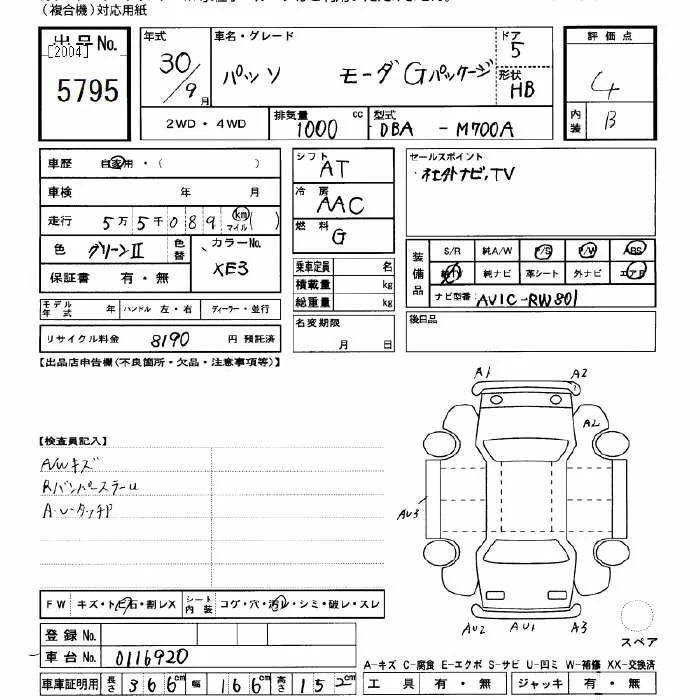 （複合機）対応用紙
出品No.
[2004]
5795
年式
30/9月
車名・グレード
パッソ モーダGパッケージ
ドア
5
形状
HB
評価点
4
内装
B
2WD・4WD
排気量
1000
cc
型式
DBA - M700A
車歴 自家用・（ ）
車検 年 月
走行 5万5千089 km マイル( )
色 グリーンⅡ 色替
カラーNo.
XE3
保証書 有・無
モデル年式 年 ハンドル 左・右 ディーラー・並行
リサイクル料金 8190 円 預託済
シフト
AT
冷房
AAC
燃料
G
乗車定員 名
積載量 kg
総重量 kg
名変期限
月 日
セールスポイント
・社外ナビ, TV
装備品
S/R 純A/W P/S P/W ABS
純TV 純ナビ 革シート 外ナビ エアB
ナビ型番 AVIC-RW801
後日品
【出品店申告欄(不良箇所・欠品・注意事項等)】
【検査員記入】
A/Wキズ
RバンパースチールU
A・U・タッチP
A1 A2
AL
AU3
AU2 AU1 A3
スペア
FW キズ・トビ石・割レX
シート内装 コゲ・穴・汚レ・シミ・破レ・スレ
登録No.
車台No. 0116920
車庫証明用 長さ 366cm 幅 166cm 高さ 152cm
A-キズ C-腐食 E-エクボ S-サビ U-凹ミ W-補修 XX-交換済
工具 有・無 ジャッキ 有・無